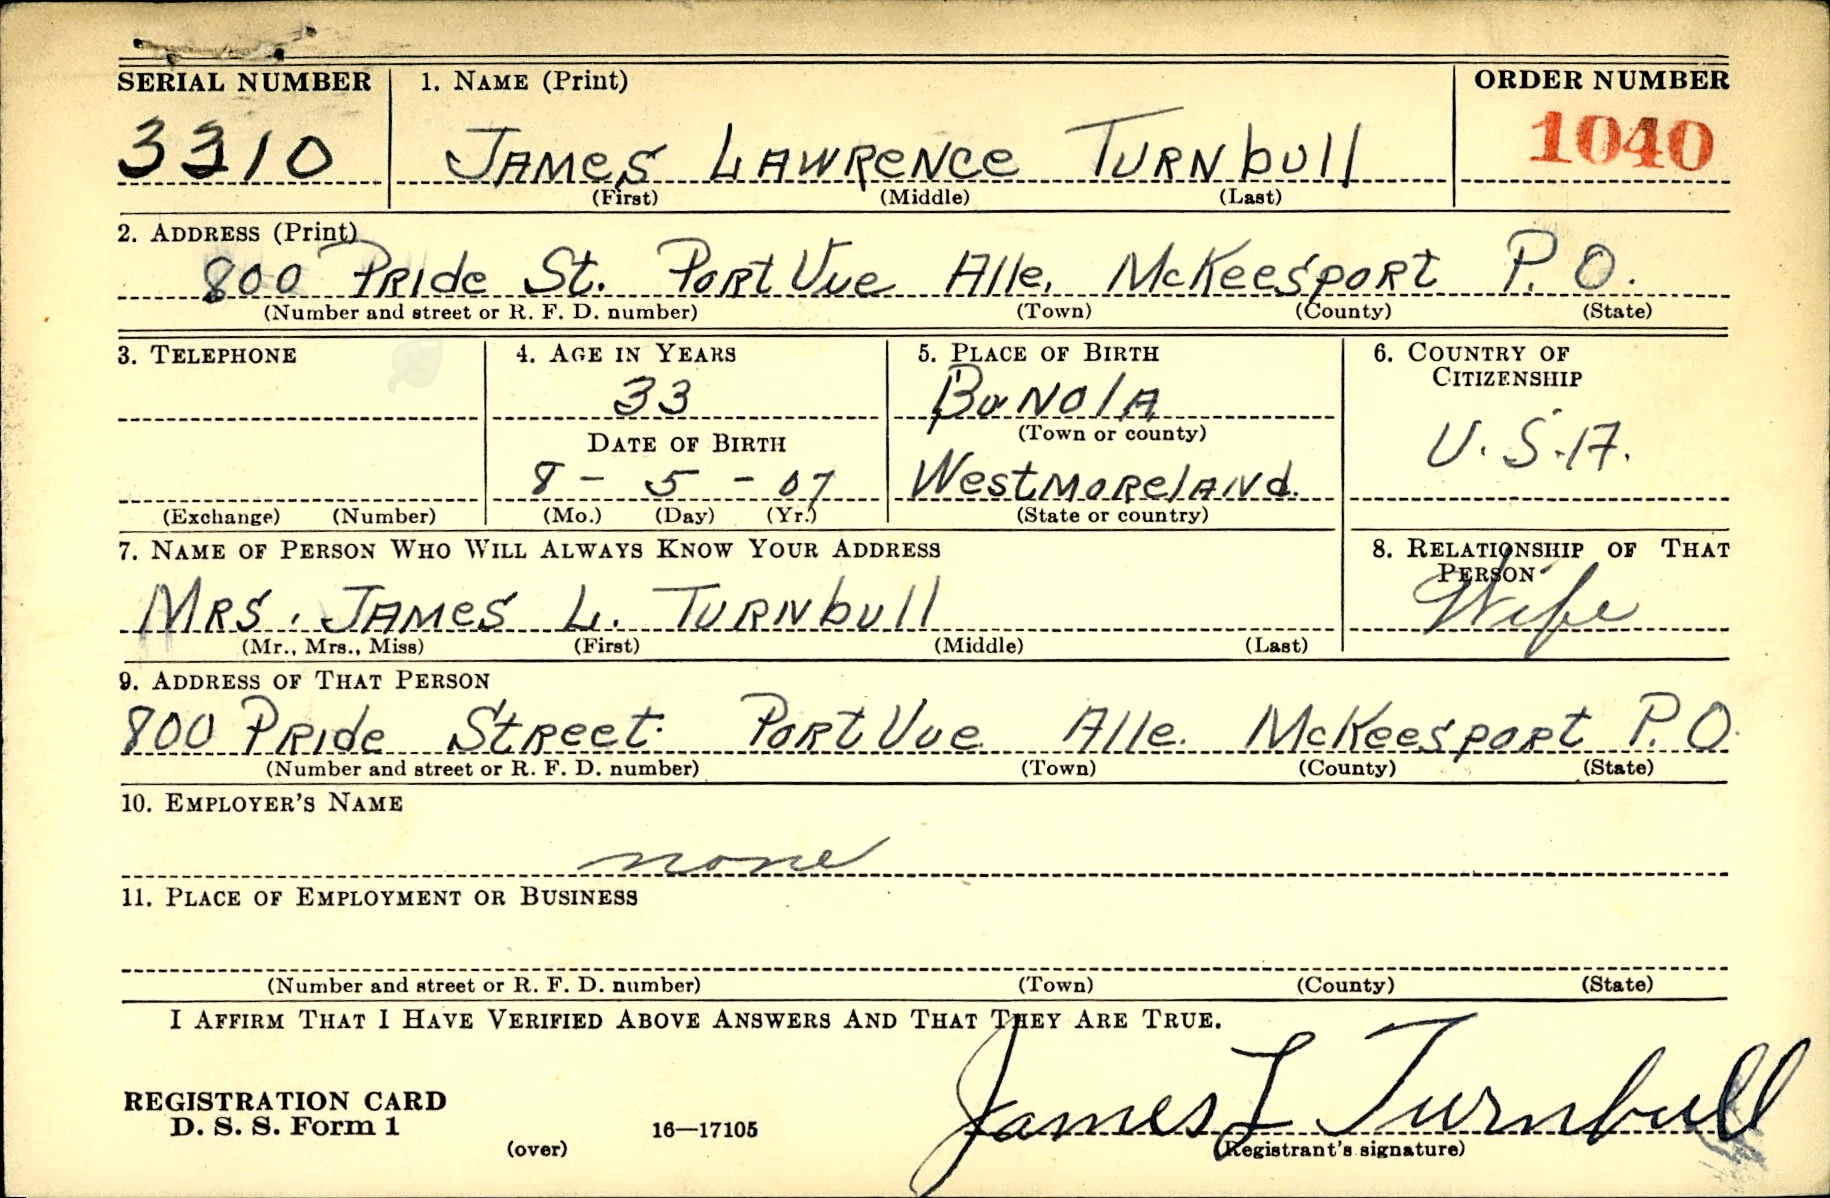 SERIAL NUMBER 1. NAME (Print) ORDER NUMBER
3310 JAMES LAWRENCE TURNbull 1040
(First) (Middle) (Last)
2. ADDRESS (Print)
800 PRIde St. PoRt Vue Alle. McKeesport P.O.
(Number and street or R. F. D. number) (Town) (County) (State)
3. TELEPHONE 4. AGE IN YEARS 5. PLACE OF BIRTH 6. COUNTRY OF CITIZENSHIP
33 BuNolA
(Town or county)
DATE OF BIRTH U.S.A.
8 - 5 - 07 WestmoRelANd.
(Exchange) (Number) (Mo.) (Day) (Yr.) (State or country)
7. NAME OF PERSON WHO WILL ALWAYS KNOW YOUR ADDRESS 8. RELATIONSHIP OF THAT PERSON
MRS. JAMES L. TURNbull Wife
(Mr., Mrs., Miss) (First) (Middle) (Last)
9. ADDRESS OF THAT PERSON
800 PRIde StReet. PoRt Vue Alle. McKeesport P.O.
(Number and street or R. F. D. number) (Town) (County) (State)
10. EMPLOYER'S NAME
none
11. PLACE OF EMPLOYMENT OR BUSINESS
(Number and street or R. F. D. number) (Town) (County) (State)
I AFFIRM THAT I HAVE VERIFIED ABOVE ANSWERS AND THAT THEY ARE TRUE.
REGISTRATION CARD
D. S. S. Form 1 James L Turnbull
(over) 16—17105 (Registrant's signature)